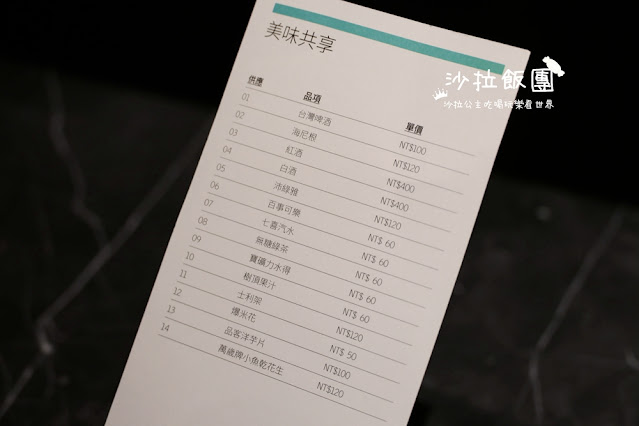 美味共享
供應 品項 單價
01 台灣啤酒 NT$100
02 海尼根 NT$120
03 紅酒 NT$400
04 白酒 NT$400
05 沛綠雅 NT$120
06 百事可樂 NT$ 60
07 七喜汽水 NT$ 60
08 無糖綠茶 NT$ 60
09 寶礦力水得 NT$ 60
10 樹頂果汁 NT$ 60
11 士利架 NT$120
12 爆米花 NT$ 50
13 品客洋芋片 NT$100
14 萬歲牌小魚乾花生 NT$120
沙拉飯團
沙拉公主吃喝玩樂看世界